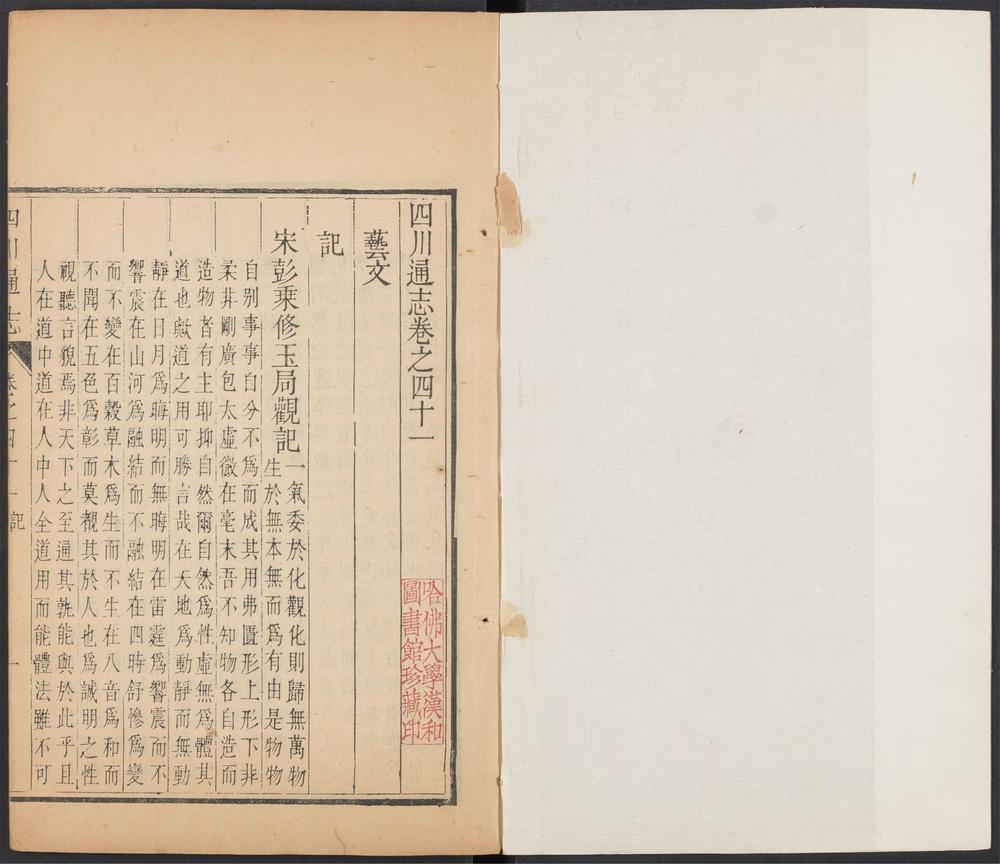 四川通志卷之四十一
藝文
記
宋彭乘修玉局觀記
一氣委於化觀化則歸無萬物
生於無本無而爲有由是物物
自别事事白分不爲而成其用弗匱形上形下非
柔非剛廣包太虛微在毫末吾不知物各自造而
造物者有主耶抑自然爾自然爲性虛無爲體其
道也歟道之用可勝言哉在天地爲動靜而無動
靜在日月爲晦明而無晦明在雷霆爲響震而不
響震在山河爲融結而不融結在四時舒慘爲變
而不變在百穀草木爲生而不生在八音爲和而
不聞在五色爲彰而莫覩其於人也爲誠明之性
視聽言貌焉非天下之至通其孰能與於此乎且
人在道中道在人中人全道用而能體法雖不可
四川通志
卷之四十一
記
一
哈佛大學漢和
圖書館珍藏印